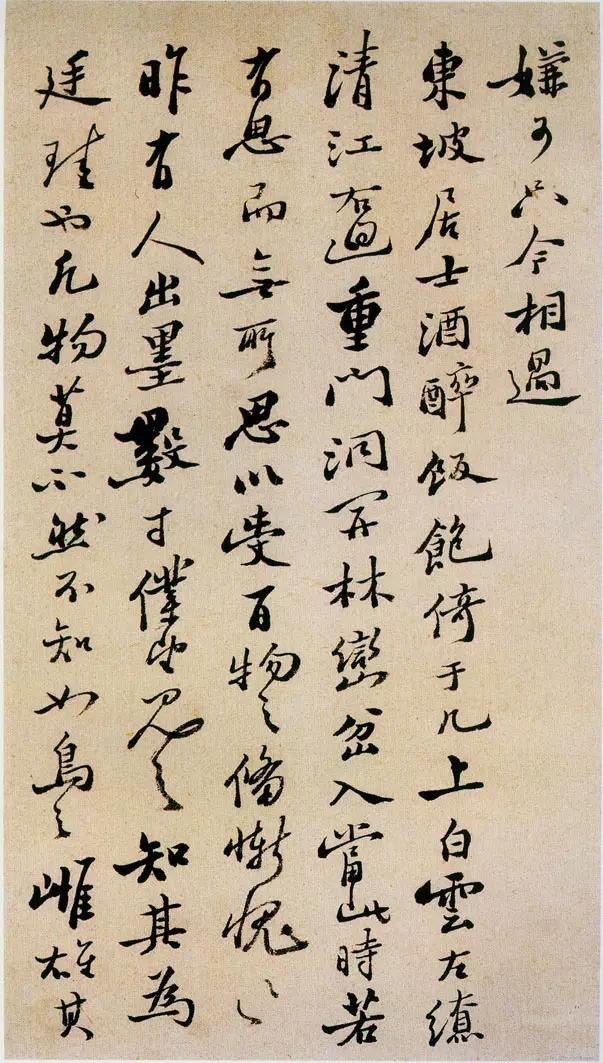 嫌可只令相過
東坡居士酒醉飯飽倚于几上白雲左繚
清江右迴重門洞開林巒岔入當此時若
有思而無所思以受百物之備慚愧〻〻
昨有人出墨數寸僕望見之知其為
廷珪也凡物莫不然不知如烏之雌雄其